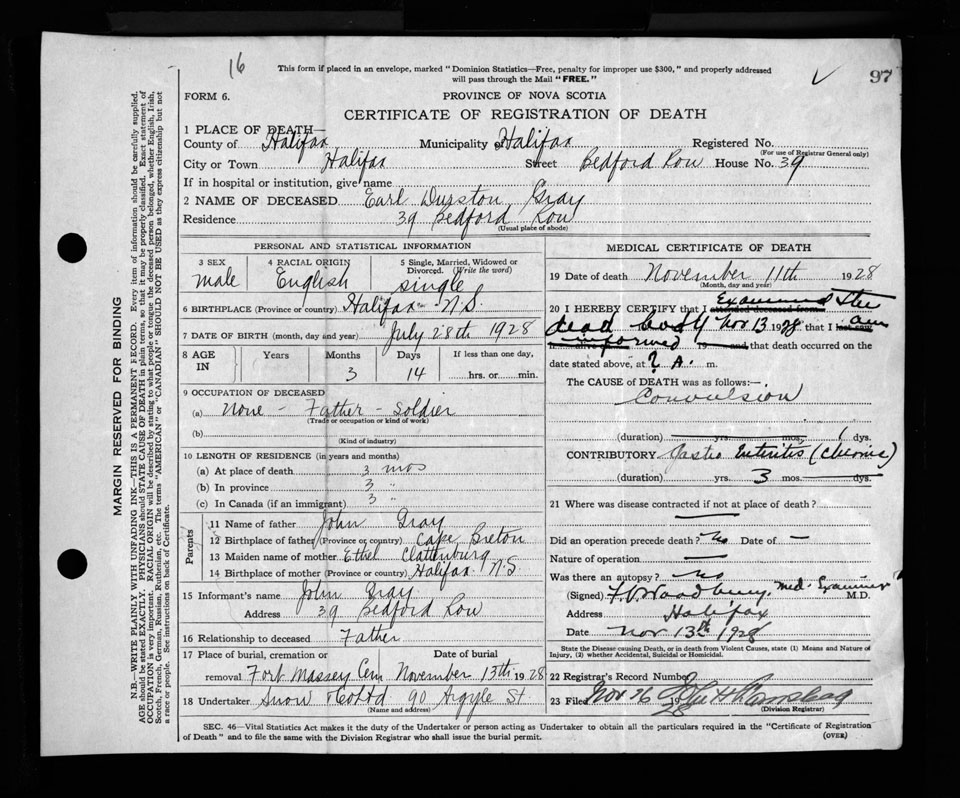 16
This form if placed in an envelope, marked "Dominion Statistics—Free, penalty for improper use $300," and properly addressed
will pass through the Mail "FREE."
97
FORM 6.
PROVINCE OF NOVA SCOTIA
CERTIFICATE OF REGISTRATION OF DEATH
1 PLACE OF DEATH—
County of Halifax Municipality of Halifax Registered No.
(For use of Registrar General only)
City or Town Halifax Street Bedford Row House No. 39
If in hospital or institution, give name
2 NAME OF DECEASED Earl Durston Gray
Residence 39 Bedford Row
(Usual place of abode)
PERSONAL AND STATISTICAL INFORMATION
3 SEX 4 RACIAL ORIGIN 5 Single, Married, Widowed or
Divorced. (Write the word)
male English single
6 BIRTHPLACE (Province or country) Halifax N.S.
7 DATE OF BIRTH (month, day and year) July 28th 1928
8 AGE IN Years Months Days If less than one day,
3 14 hrs. or min.
9 OCCUPATION OF DECEASED
(a) None - Father - Soldier
(Trade or occupation or kind of work)
(b)
(Kind of industry)
10 LENGTH OF RESIDENCE (in years and months)
(a) At place of death 3 mos
(b) In province 3 "
(c) In Canada (if an immigrant) 3 "
Parents
11 Name of father John Gray
12 Birthplace of father (Province or country) Cape Breton
13 Maiden name of mother Ethel Clattenburg
14 Birthplace of mother (Province or country) Halifax N.S.
15 Informant's name John Gray
Address 39 Bedford Row
16 Relationship to deceased Father
17 Place of burial, cremation or Date of burial
removal Fort Massey Cem November 13th 1928
18 Undertaker Snow & Co Ltd 90 Argyle St.
(Name and address)
MEDICAL CERTIFICATE OF DEATH
19 Date of death November 11th 1928
(Month, day and year)
20 I HEREBY CERTIFY that I attended deceased from Examined the
dead body Nov 13 1928 that I last saw am
informed 19 and that death occurred on the
date stated above, at ? A. m.
The CAUSE of DEATH was as follows:—
Convulsion
(duration) yrs. mos. 1 dys.
CONTRIBUTORY Gastro Enteritis (Chronic)
(duration) yrs. 3 mos. dys.
21 Where was disease contracted if not at place of death?
Did an operation precede death? No Date of —
Nature of operation —
Was there an autopsy? No
(Signed) F. V. Woodbury Med. Examiner M.D.
Address Halifax
Date Nov 13th 1928
State the Disease causing Death, or in death from Violent Causes, state (1) Means and Nature of
Injury, (2) whether Accidental, Suicidal or Homicidal.
22 Registrar's Record Number
23 Filed Nov 26
(Division Registrar)
SEC. 46—Vital Statistics Act makes it the duty of the Undertaker or person acting as Undertaker to obtain all the particulars required in the "Certificate of Registration
of Death" and to file the same with the Division Registrar who shall issue the burial permit.
(OVER)
MARGIN RESERVED FOR BINDING
N.B.—WRITE PLAINLY WITH UNFADING INK—THIS IS A PERMANENT RECORD. Every item of information should be carefully supplied.
AGE should be stated EXACTLY. PHYSICIANS should STATE CAUSE OF DEATH in plain terms, so that it may be properly classified. Exact statement of
OCCUPATION is very important. RACIAL ORIGIN will be described by stating to what people or tongue the deceased person belonged, whether English, Irish,
Scotch, French, German, Russian, Ruthenian, etc. The terms "AMERICAN" or "CANADIAN" SHOULD NOT BE USED as they express citizenship but not
a race or people. See instructions on back of Certificate.